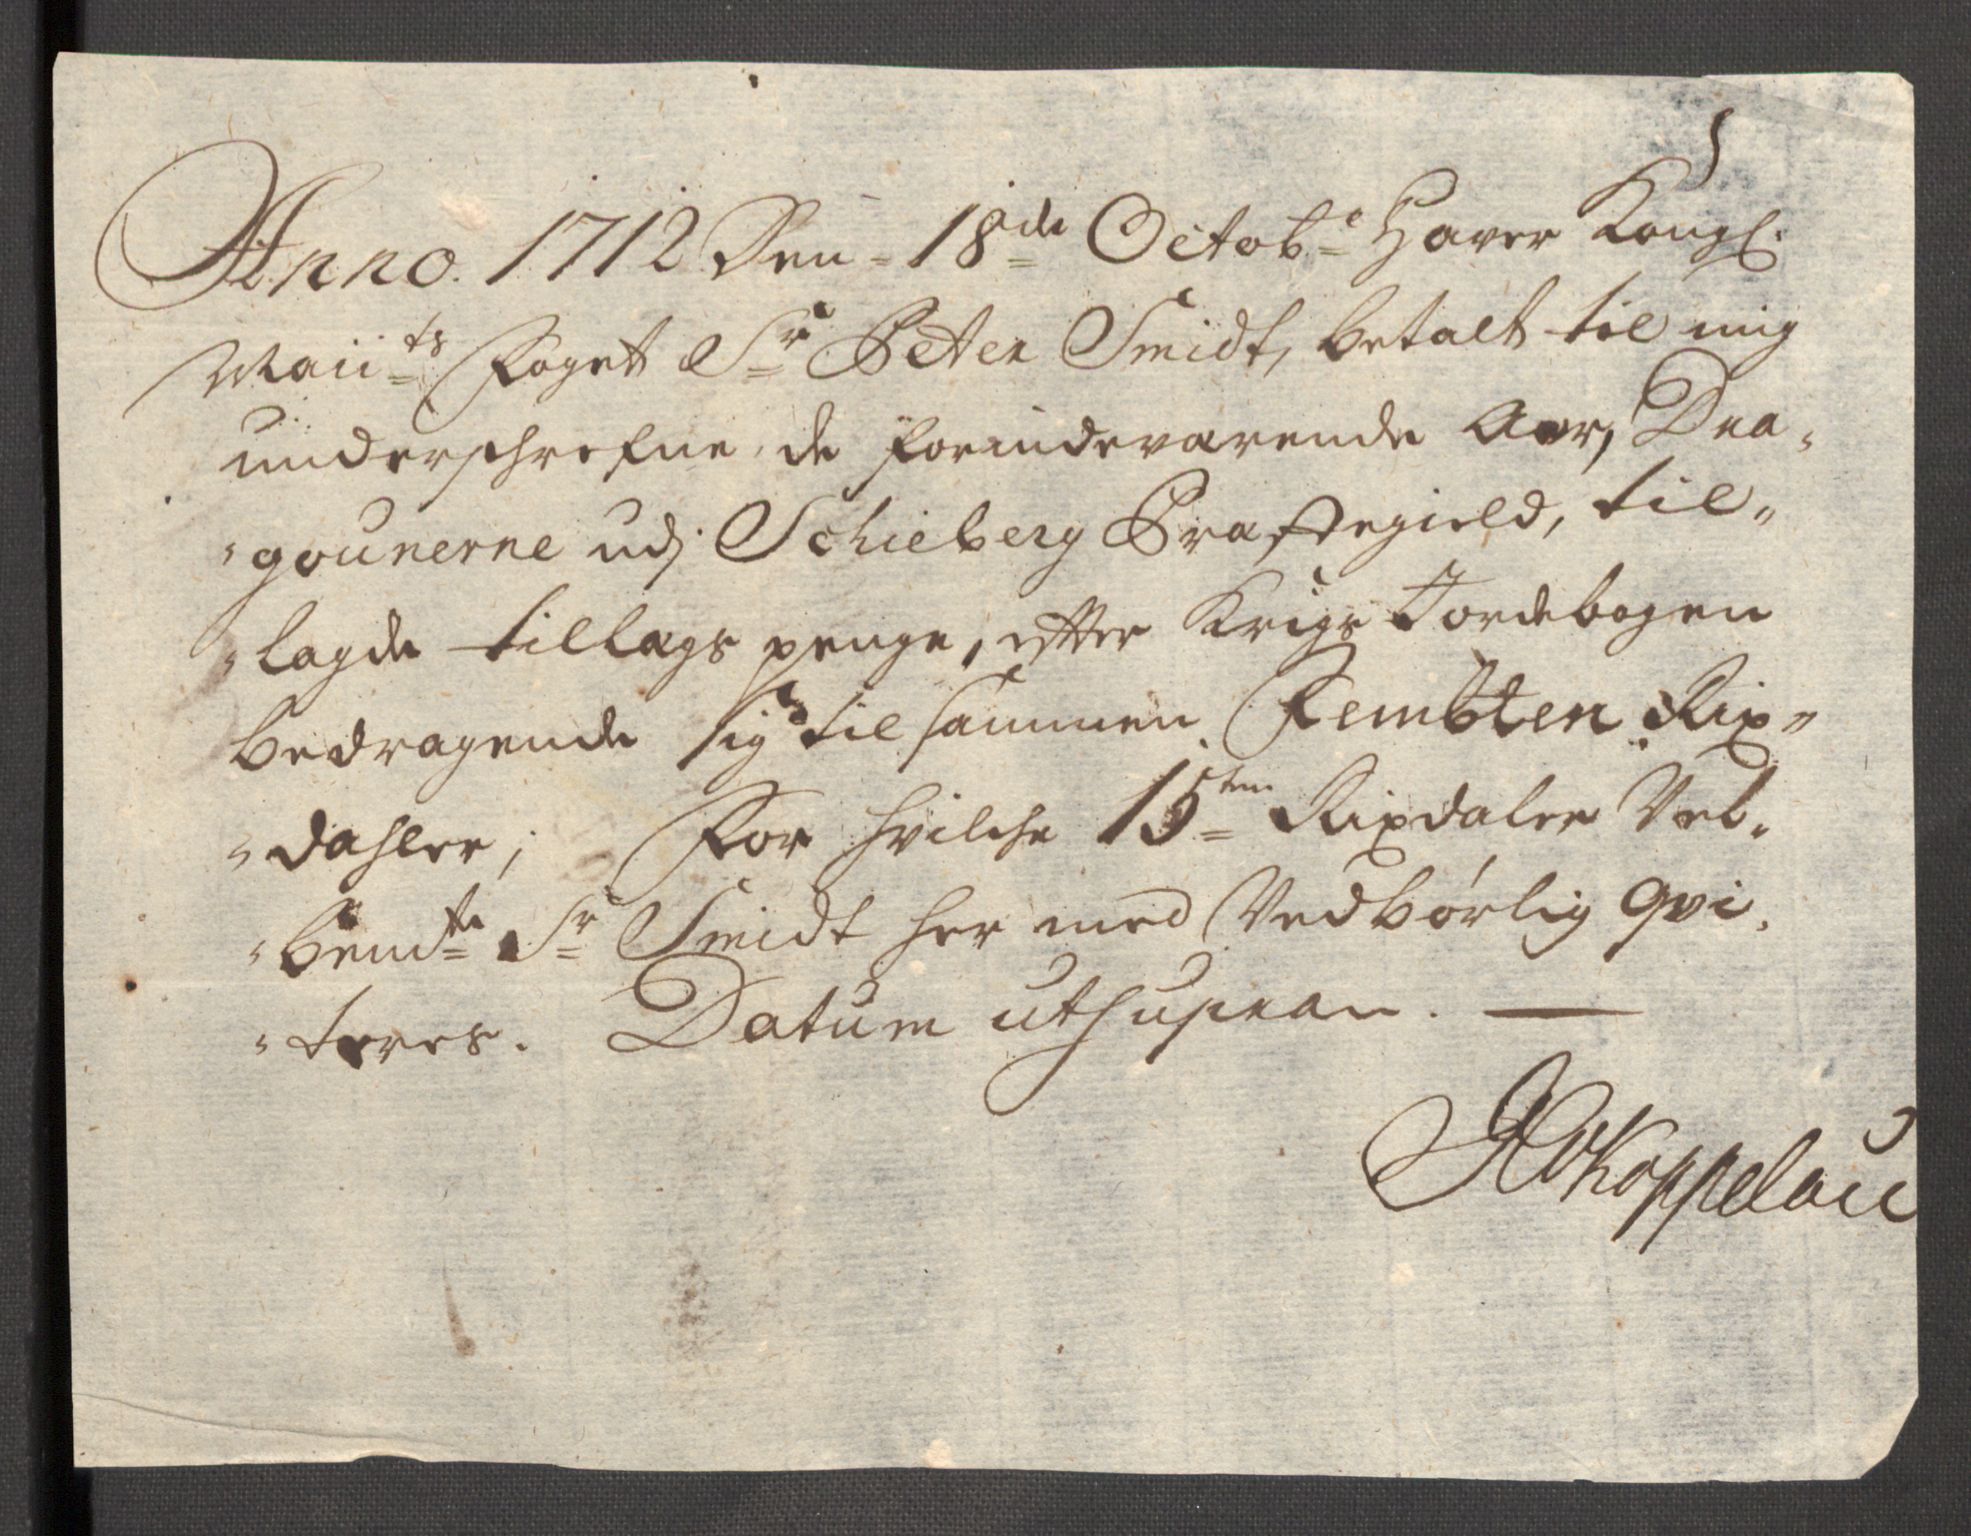 Anno. 1712 Den 18de Octobr Haver Kongl:
Maiits Foget Sr Peter Smidt, betalt til mig
underschrefne de for indeværende Aar, Dra-
gounerne udj Schieberg Præstegield, til-
lagde tillags penge, efter Krigs Jordebogen
bedragende sig til sammen Fembten Rix-
dahler; For hvilche 15ten Rixdaler Vel-
bemte Sr Smidt her med Vedbørlig qvi-
teres. Datum utsupran.